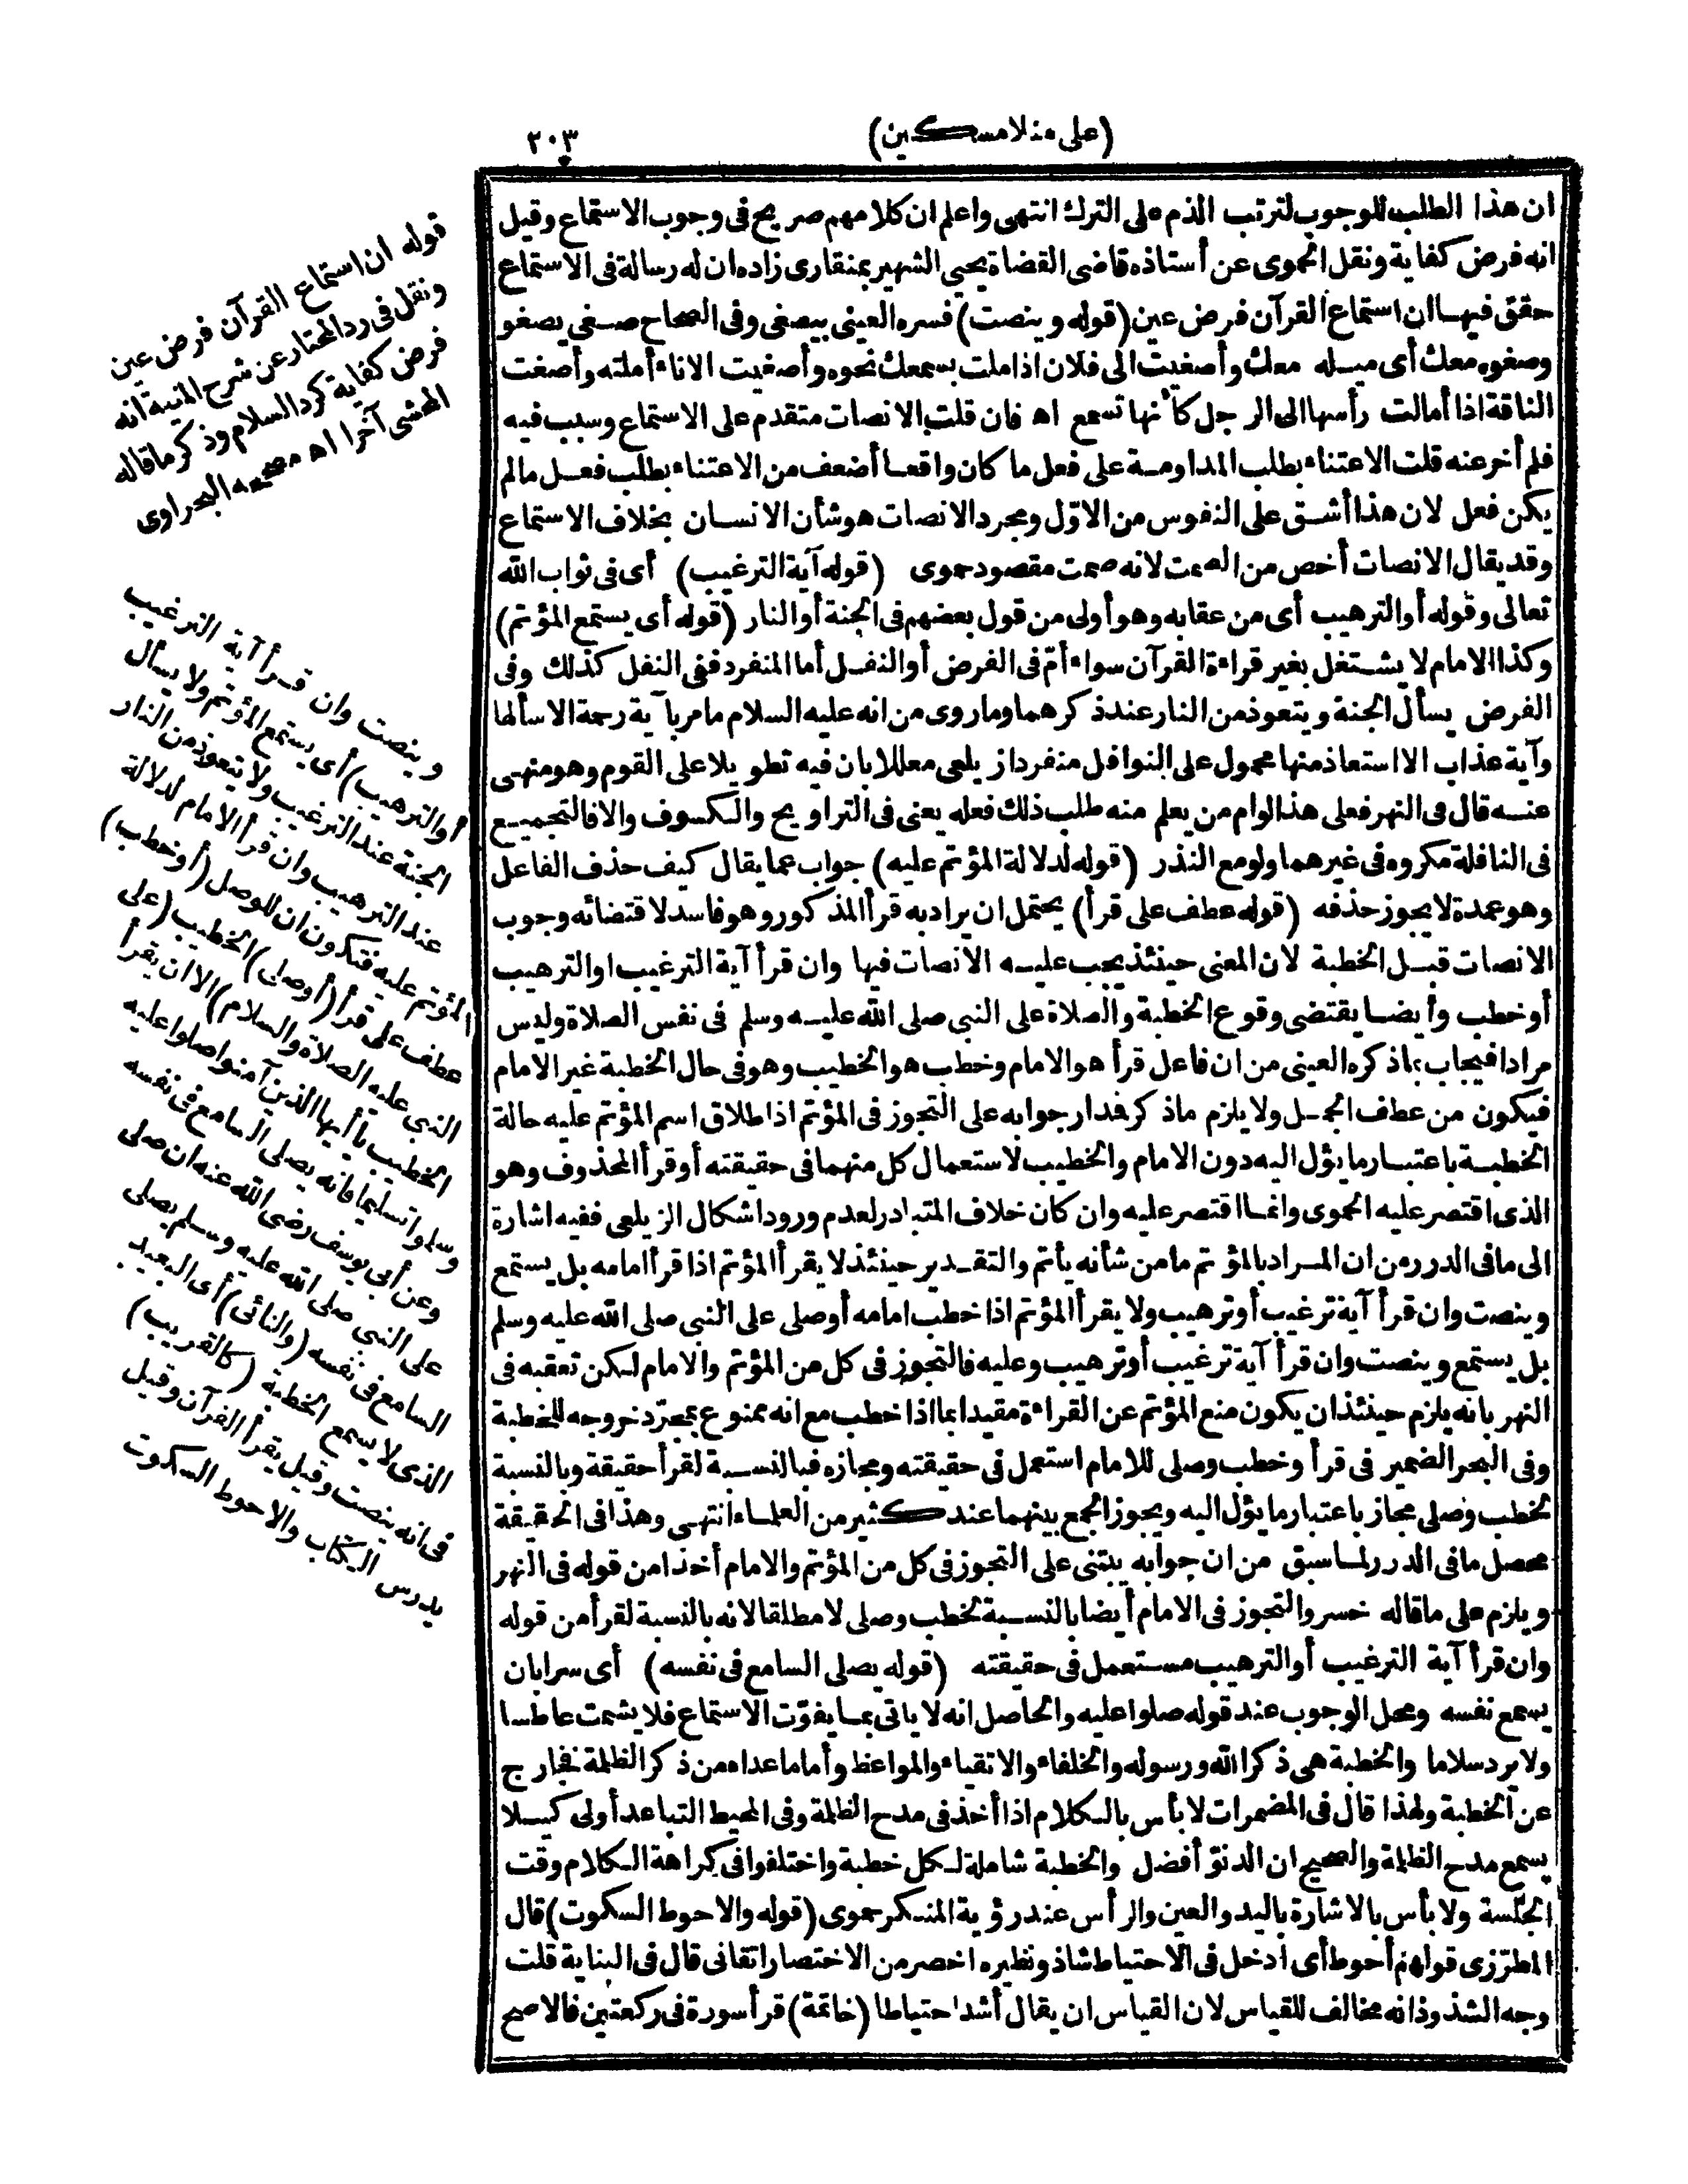 (على منلامسكين)
٢٠٣
ان هذا الطلب للوجوب لترتب الذم على الترك انتهى واعلم ان كلامهم صريح فى وجوب الاستماع وقيل
انه فرض كفاية ونقل الحموى عن أستاذه قاضى القضاة يحيى الشهير بمنقارى زاده ان له رسالة فى الاستماع
حقق فيها ان استماع القرآن فرض عين (قوله وينصت) فسره العينى بيصغى وفى الصحاح صغى يصغو
وصغوه معك أى ميله معك وأصغيت الى فلان اذا ملت بسمعك نحوه وأصغيت الاناء أملته وأصغت
الناقة اذا أمالت رأسها الى الرجل كأنها تسمع اه فان قلت الانصات متقدم على الاستماع وسبب فيه
فلم أخر عنه قلت الاعتناء بطلب المداومة على فعل ما كان واقعا أضعف من الاعتناء بطلب فعل مالم
يكن فعل لان هذا أشق على النفوس من الاوّل ومجرد الانصات هو شأن الانسان بخلاف الاستماع
وقد يقال الانصات أخص من الصمت لانه صمت مقصود حموى (قوله آية الترغيب) أى فى ثواب الله
تعالى وقوله أو الترهيب أى من عقابه وهو أولى من قول بعضهم فى الجنة أو النار (قوله أى يستمع المؤتم)
وكذا الامام لا يشتغل بغير قراءة القرآن سواء أمّ فى الفرض أو النفل أما المنفرد ففى النفل كذلك وفى
الفرض يسأل الجنة ويتعوذ من النار عند ذكرهما وما روى من انه عليه السلام ما مر بآية رحمة الا سألها
وآية عذاب الا استعاذ منها محمول على النوافل منفردا زيلعى معللا بان فيه تطويلا على القوم وهو منهى
عنه قال فى النهر فعلى هذا لو ام من يعلم منه طلب ذلك فعله يعنى فى التراويح والكسوف والا فالتجميع
فى النافلة مكروه فى غيرهما ولو مع النذر (قوله لدلالة المؤتم عليه) جواب عما يقال كيف حذف الفاعل
وهو عمدة لا يجوز حذفه (قوله عطف على قرأ) يحتمل ان يراد به قرأ المذكور وهو فاسد لاقتضائه وجوب
الانصات قبل الخطبة لان المعنى حينئذ يجب عليه الانصات فيها وان قرأ آية الترغيب او الترهيب
أو خطب وأيضا يقتضى وقوع الخطبة والصلاة على النبى صلى الله عليه وسلم فى نفس الصلاة وليس
مرادا فيجاب بما ذكره العينى من ان فاعل قرأ هو الامام وخطب هو الخطيب وهو فى حال الخطبة غير الامام
فيكون من عطف الجمل ولا يلزم ما ذكر فدار جوابه على التجوز فى المؤتم اذ اطلاق اسم المؤتم عليه حالة
الخطبة باعتبار ما يؤل اليه دون الامام والخطيب لاستعمال كل منهما فى حقيقته أو قرأ المحذوف وهو
الذى اقتصر عليه الحموى وانما اقتصر عليه وان كان خلاف المتبادر لعدم ورود اشكال الزيلعى ففيه اشارة
الى ما فى الدرر من ان المراد بالمؤتم ما من شأنه يأتم والتقدير حينئذ لا يقرأ المؤتم اذا قرأ امامه بل يستمع
وينصت وان قرأ آية ترغيب أو ترهيب ولا يقرأ المؤتم اذا خطب امامه أو صلى على النبى صلى الله عليه وسلم
بل يستمع وينصت وان قرأ آية ترغيب أو ترهيب وعليه فالتجوز فى كل من المؤتم والامام لكن تعقبه فى
النهر بانه يلزم حينئذ ان يكون منع المؤتم عن القراءة مقيدا بما اذا خطب مع انه ممنوع بمجرّد خروجه للخطبة
وفى البحر الضمير فى قرأ وخطب وصلى للامام استعمل فى حقيقته ومجازه فبالنسبة لقرأ حقيقة وبالنسبة
لخطب وصلى مجاز باعتبار ما يؤل اليه ويجوز الجمع بينهما عند كثير من العلماء انتهى وهذا فى الحقيقة
محصل ما فى الدرر لما سبق من ان جوابه يبتنى على التجوز فى كل من المؤتم والامام أخذا من قوله فى النهر
ويلزم على ما قاله خسرو التجوز فى الامام أيضا بالنسبة لخطب وصلى لا مطلقا لانه بالنسبة لقرأ من قوله
وان قرأ آية الترغيب أو الترهيب مستعمل فى حقيقته (قوله يصلى السامع فى نفسه) أى سرا بان
يسمع نفسه ومحل الوجوب عند قوله صلوا عليه والحاصل انه لا ياتى بما يفوّت الاستماع فلا يشمت عاطسا
ولا يرد سلاما والخطبة هى ذكر الله ورسوله والخلفاء والاتقياء والمواعظ وأما ما عداه من ذكر الظلمة فخارج
عن الخطبة ولهذا قال فى المضمرات لا بأس بالكلام اذا أخذ فى مدح الظلمة وفى المحيط التباعد أولى كيلا
يسمع مدح الظلمة والصحيح ان الدنوّ أفضل والخطبة شاملة لكل خطبة واختلفوا فى كراهة الكلام وقت
الجلسة ولا بأس بالاشارة باليد والعين والرأس عند رؤية المنكر حموى (قوله والاحوط السكوت) قال
المطرّزى قولهم أحوط أى ادخل فى الاحتياط شاذ ونظيره اخصر من الاختصار اتقانى قال فى البناية قلت
وجه الشذوذ انه مخالف للقياس لان القياس ان يقال أشد احتياطا (خاتمة) قرأ سورة فى ركعتين فالاصح
قوله ان استماع القرآن فرض عين
ونقل فى رد المحتار عن شرح المنية انه
فرض كفاية كرد السلام وذكر ما قاله
المحشى آخرا اه مصححه البحراوى
وينصت وان قرأ آية الترغيب
أو الترهيب) أى يستمع المؤتم ولا يسأل
الجنة عند الترغيب ولا يتعوذ من النار
عند الترهيب وان قرأ الامام لدلالة
المؤتم عليه فتكون ان للوصل (أو خطب)
عطف على قرأ (أو صلى) الخطيب (على
النبى عليه الصلاة والسلام) الا ان يقرأ
الخطيب يا أيها الذين آمنوا صلوا عليه
وسلموا تسليما فانه يصلى السامع فى نفسه
وعن أبى يوسف رضى الله عنه ان صلى
على النبى صلى الله عليه وسلم يصلى
السامع فى نفسه (والنائى) أى البعيد
الذى لا يسمع الخطبة (كالقريب)
فى انه ينصت وقيل يقرأ القرآن وقيل
يدرس الكتاب والاحوط السكوت